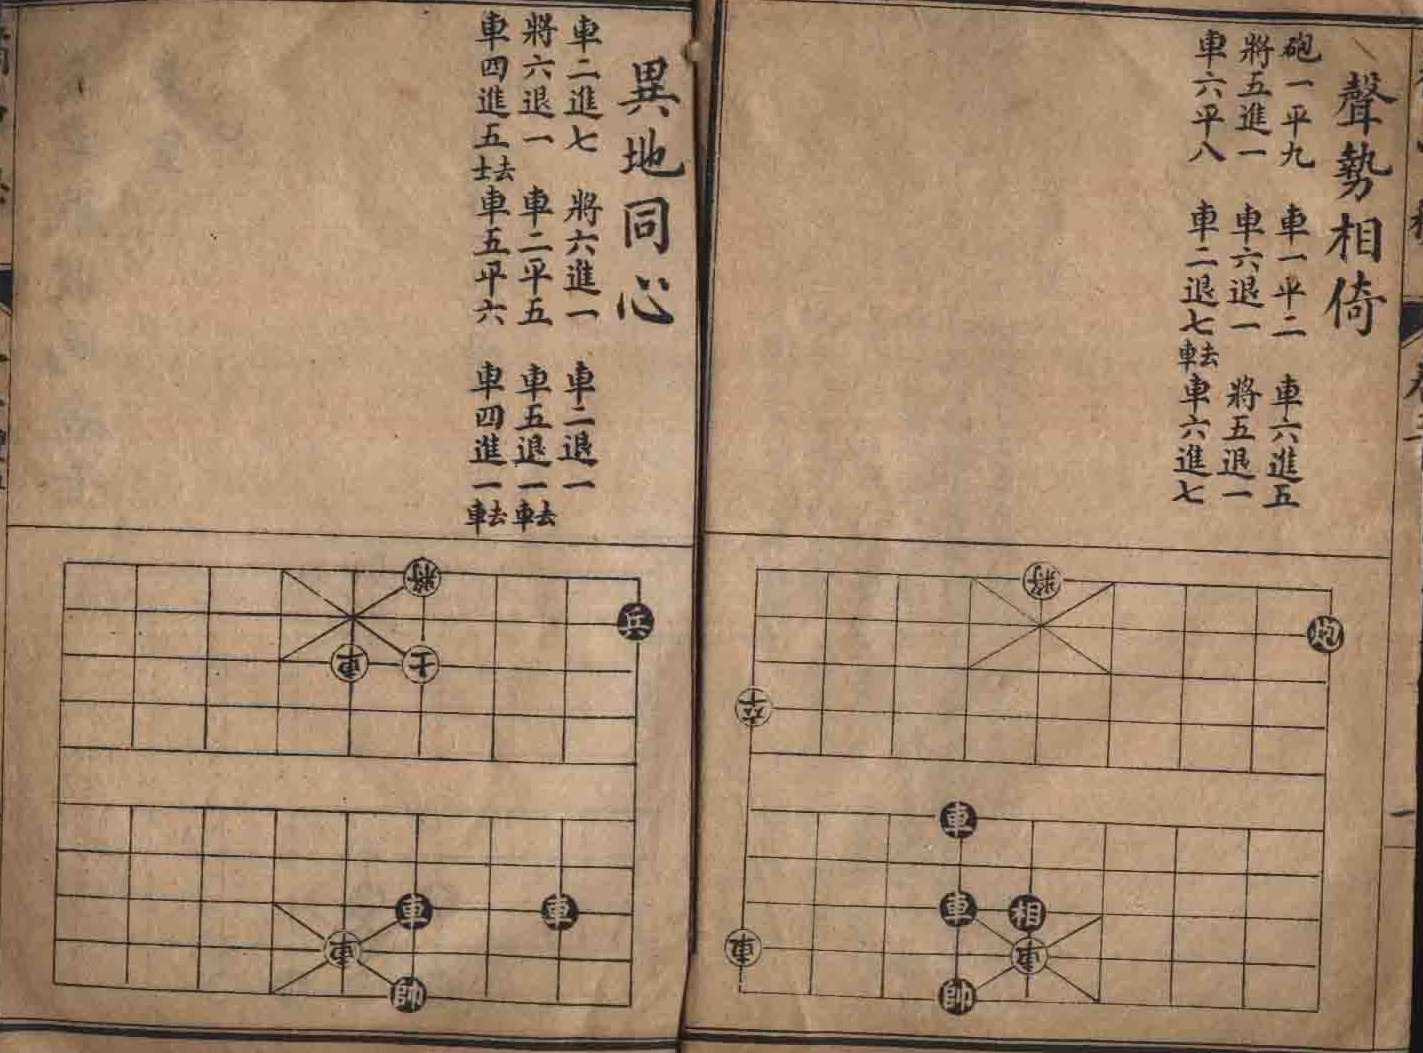 聲勢相倚
砲一平九 車一平二 車六進五
將五進一 車六退一 將五退一
車六平八 車二退七去車 車六進七
將
炮
卒
車
車 相
車 車
帥
異地同心
車二進七 將六進一 車二退一
將六退一 車二平五 車五退一去車
車四進五去士 車五平六 車四進一去車
將
兵
車 士
車 車
車
帥